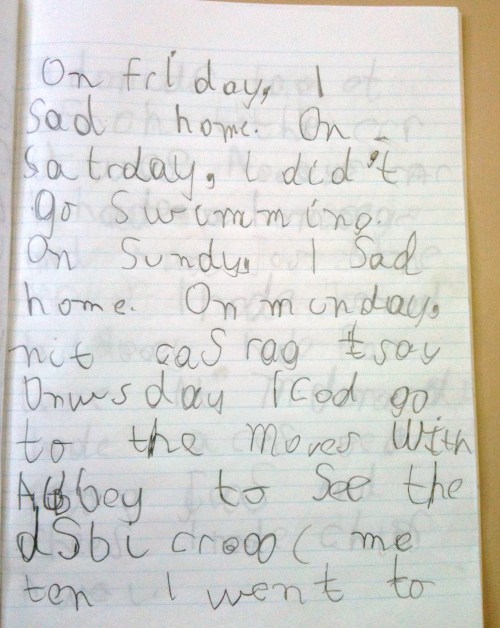 On friday, I
Sad home. On
Satrday, I did't
go Swimming.
On Sundy, I Sad
home. On munday,
nit caS rag
day I Cod go
to the Moves With
Abbey to See the
me
ten I went to